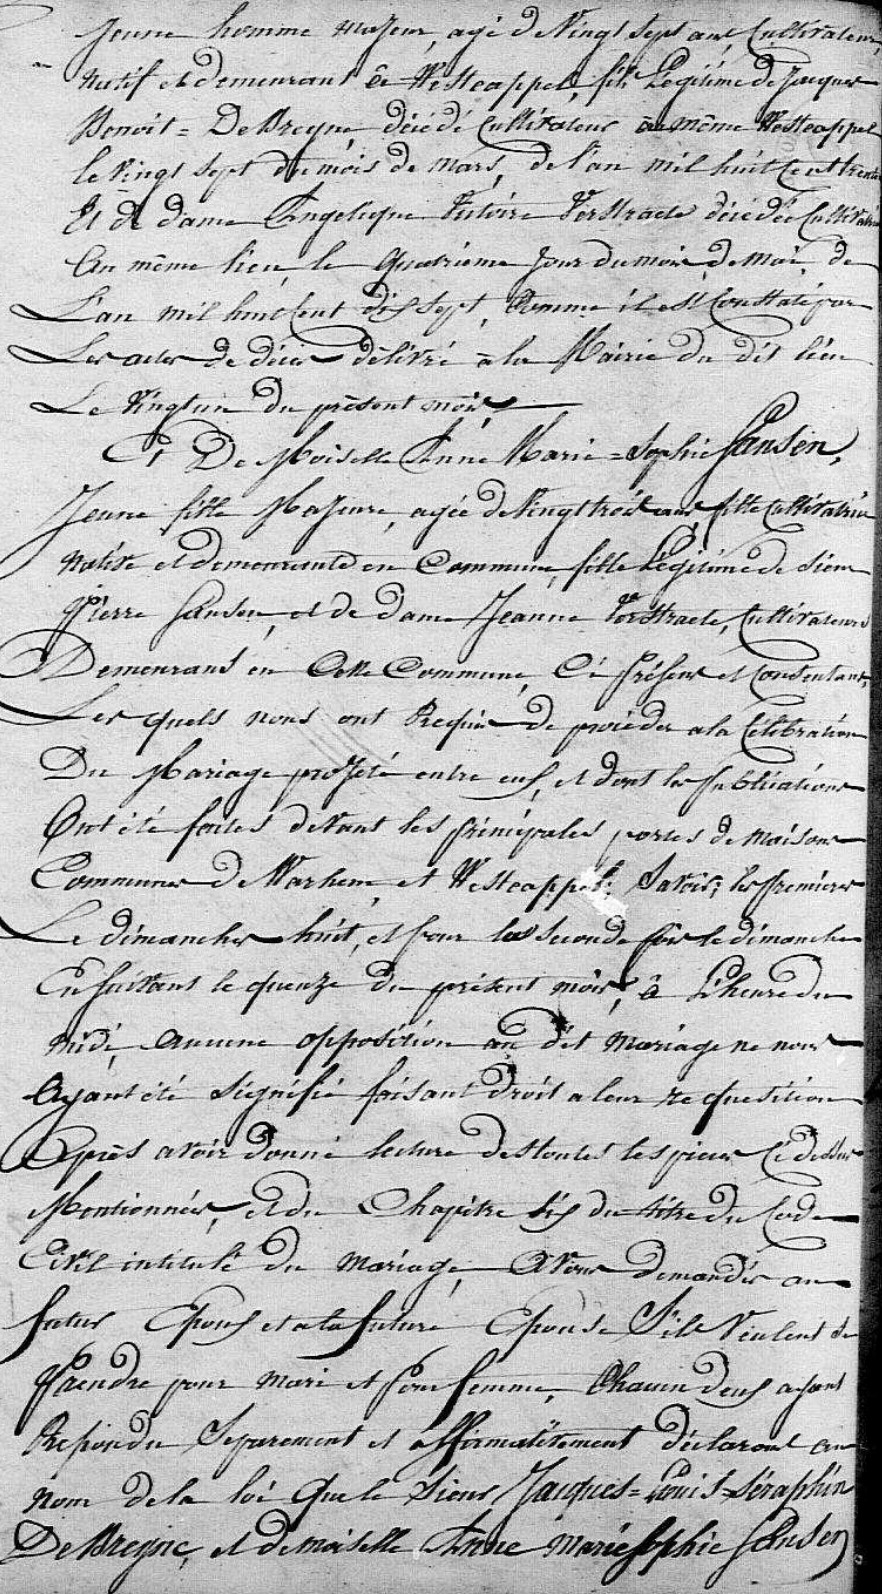 Jeune homme majeur, agé de Vingt sept ans, Cultivateur,
natif et demeurant à Westcappel, fils Légitime de Jacques
Benoit = DeBreyne décédé Cultivateur au même Westcappel
le Vingt sept du mois de mars, de l'an mil huit Cent trente
Et de dame Angelique Victoire Verstraete décédée Cultivatrice
Au même lieu, le quatrième Jour du mois de Mai, de
L'an mil huit Cent dix sept, Comme il est Constaté par
Les actes de décès délivré à la Mairie du dit lieu
Le Vingt un du présent mois
Et DeMoiselle Anne Marie = Sophie Jansen,
Jeune fille Majeure, agée de Vingt trois ans, fille Cultivatrice
native et demeurante en Commune, fille Légitime de Sieur
Pierre Jansen, et de dame Jeanne Verstraete, Cultivateurs
Demeurans en Cette Commune, Ci Présens et Consentans,
Les quels nous ont Requis de procéder a la Célébration
Du Mariage projeté entre eux, et dont les Publications
Ont été faites devant les principales portes de Maisons
Communes de Warhem, et Westcappel; Savoir; les premieres
Le dimanche huit, et pour la seconde fois le dimanche
En suittant le quinze du présent mois, à L'heure du
midi, aucune opposition au dit mariage ne nous
Ayant été signifié faisant droit a leur requisition
Après avoir donné lecture de toutes les pieces Ci dessus
Mentionnées, et du Chapitre six du titre du Code
Civil intitulé du mariage, Avons demandés au
futur Epoux et a la future Epouse S'ils Veulent se
Prendre pour mari et Pour femme, Chacun d'eux ayant
Repondu Séparement et affirmativement déclarons au
nom de la loi que le Sieur Jacques = Louis = Séraphin
DeBreyne, et demoiselle Anne Marie Sophie Jansen